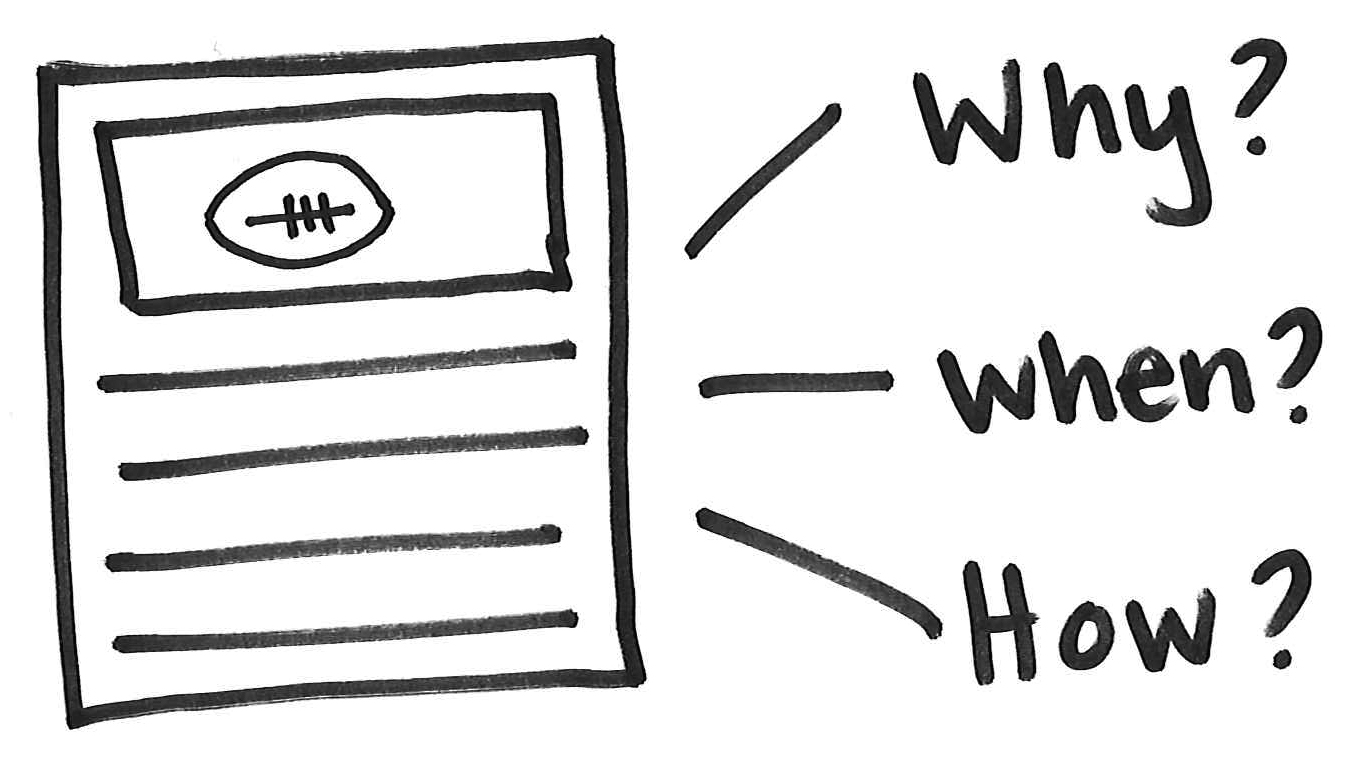 Why?
When?
How?